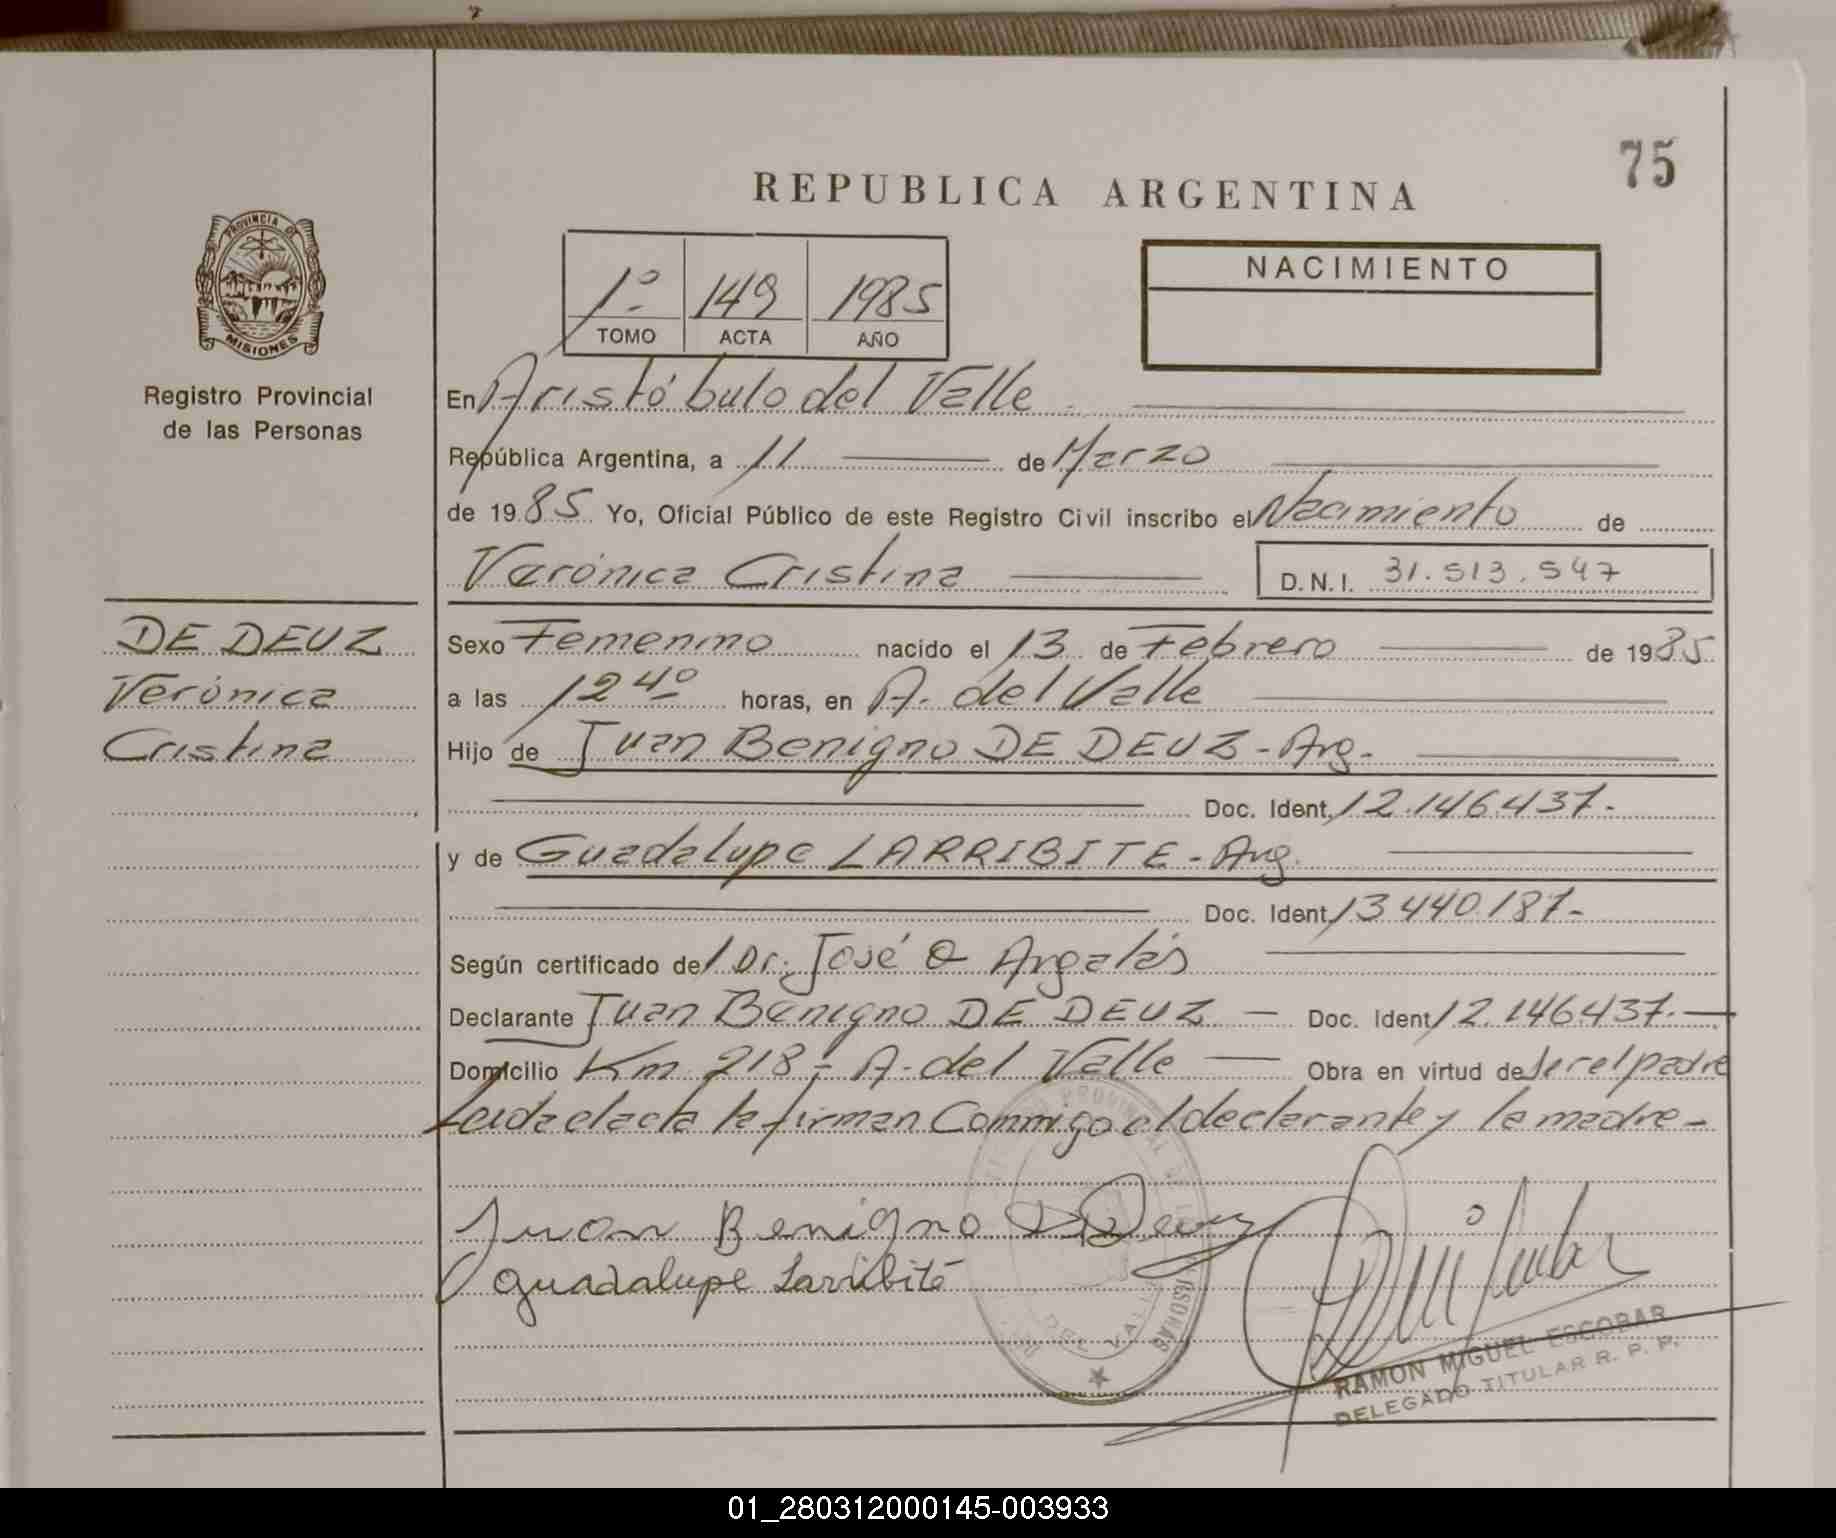 75
REPUBLICA ARGENTINA
PROVINCIA DE
MISIONES
Registro Provincial
de las Personas
1º 149 1985
TOMO ACTA AÑO
NACIMIENTO
En Aristóbulo del Valle
República Argentina, a 11 de Marzo
de 1985 Yo, Oficial Público de este Registro Civil inscribo el Nacimiento de
Verónica Cristina D.N.I. 31.513.547
DE DEUZ
Verónica
Cristina
Sexo Femenino nacido el 13 de Febrero de 1985
a las 12 40 horas, en A. del Valle
Hijo de Juan Benigno DE DEUZ - Arg.
Doc. Ident. 12.146.437.-
y de Guadalupe LARRIBITE - Arg.
Doc. Ident. 13.440.187.-
Según certificado del Dr. José O Argalás
Declarante Juan Benigno DE DEUZ — Doc. Ident 12.146.437.—
Domicilio Km. 218 - A. del Valle — Obra en virtud de ser el padre
Leida el acta la firman Conmigo el declarante y la madre -
Juan Benigno De Deuz
Guadalupe Larribité
DEL VALLE
RAMON MIGUEL ESCOBAR
DELEGADO TITULAR R. P. P.
01_280312000145-003933